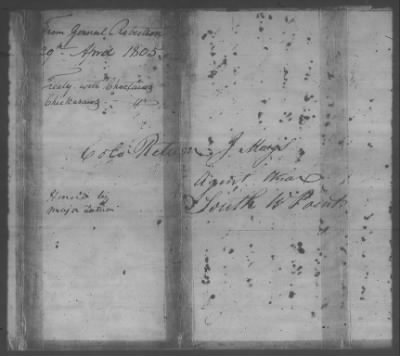 From General Robertson
29th April 1805.
Treaty with Choctaws
Chickasaws &c
Colo Return J. Meigs
Agent
South W Point
by
Major